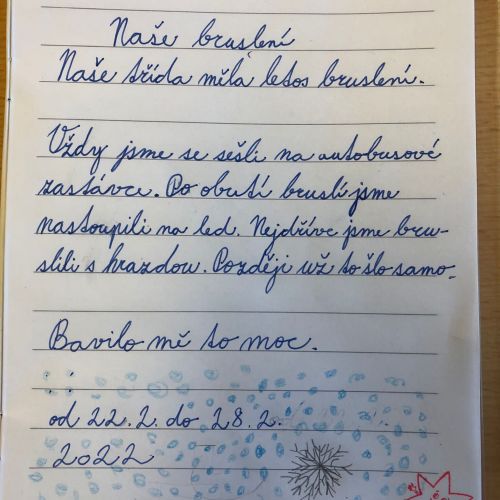 Naše bruslení
Naše třída měla letos bruslení.
Vždy jsme se sešli na autobusové
zastávce. Po obutí bruslí jsme
nastoupili na led. Nejdříve jsme bru-
slili s hrazdou. Později už to šlo samo.
Bavilo mě to moc.
od 22.2. do 28.2.
2022